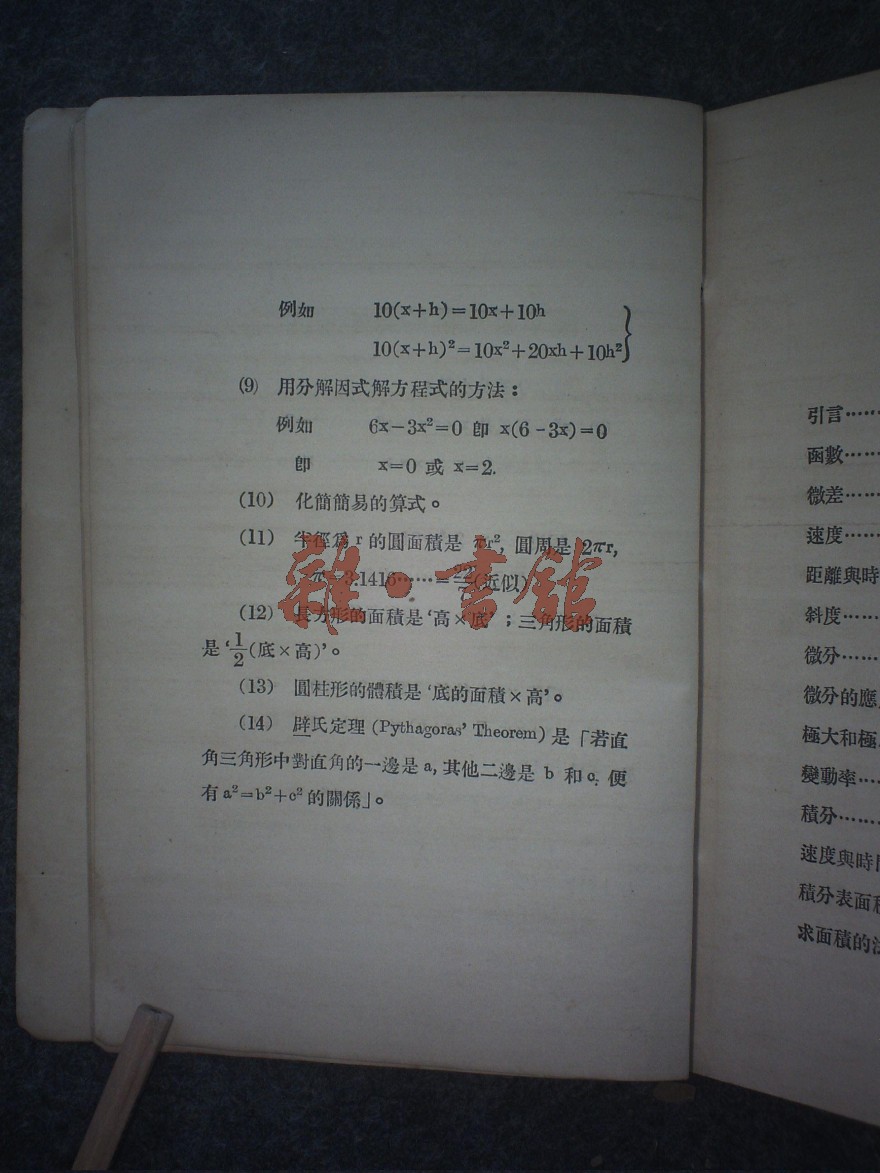 例如 10(x+h)=10x+10h
10(x+h)²=10x²+20xh+10h²}
(9) 用分解因式解方程式的方法：
例如 6x-3x²=0 卽 x(6-3x)=0
卽 x=0 或 x=2.
(10) 化簡簡易的算式。
(11) 半徑爲 r 的圓面積是 πr², 圓周是 2πr,
π=3.1416……=22/7(近似)
(12) 長方形的面積是‘高×底’；三角形的面積
是‘1/2(底×高)’。
(13) 圓柱形的體積是‘底的面積×高’。
(14) 辟氏定理 (Pythagoras’ Theorem) 是「若直
角三角形中對直角的一邊是 a, 其他二邊是 b 和 c. 便
有 a²=b²+c² 的關係」。
雜·書館
引言……
函數……
微差……
速度……
距離與時
斜度……
微分……
微分的應
極大和極
變動率……
積分……
速度與時間
積分表面積
求面積的法